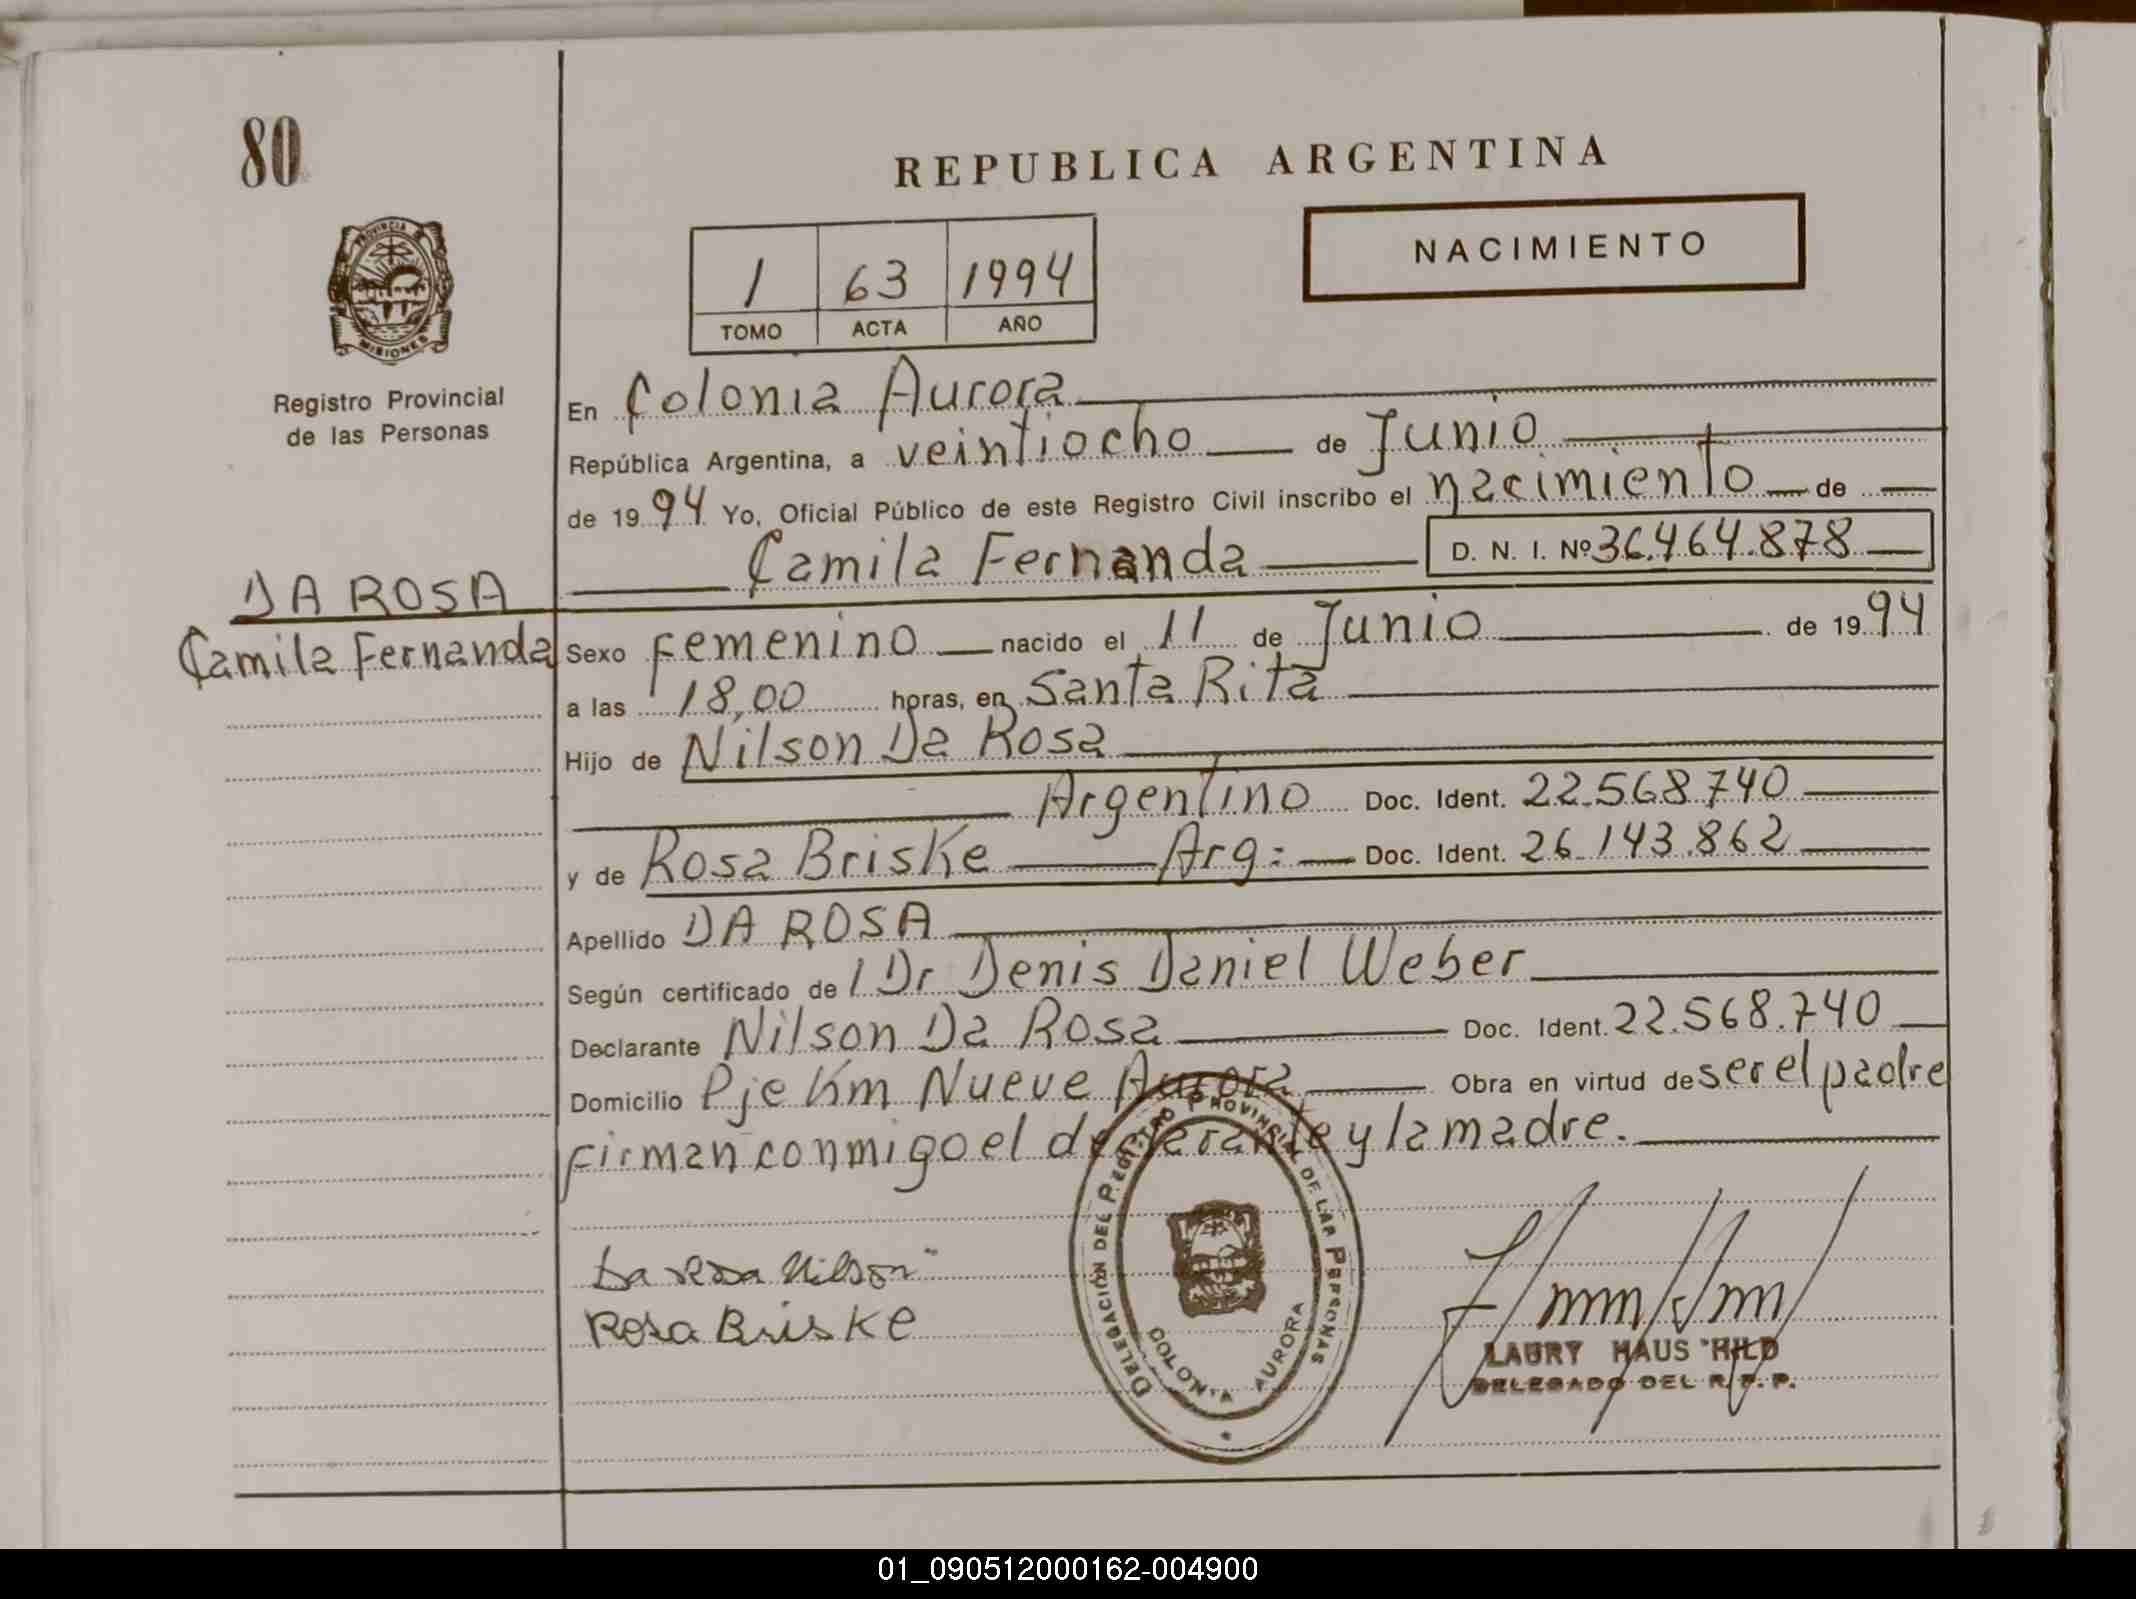 80
REPUBLICA ARGENTINA
NACIMIENTO
1 63 1994
TOMO ACTA AÑO
PROVINCIA DE
MISIONES
Registro Provincial
de las Personas
DA ROSA
Camila Fernanda
En Colonia Aurora
República Argentina, a veintiocho de Junio
de 1994 Yo, Oficial Público de este Registro Civil inscribo el nacimiento de
Camila Fernanda D. N. I. Nº 36.464.878
Sexo Femenino nacido el 11 de Junio de 1994
a las 18,00 horas, en Santa Rita
Hijo de Nilson Da Rosa
Argentino Doc. Ident. 22.568.740
y de Rosa Briske Arg: Doc. Ident. 26.143.862
Apellido DA ROSA
Según certificado de l Dr Denis Daniel Weber
Declarante Nilson Da Rosa Doc. Ident. 22.568.740
Domicilio Pje Km Nueve Aurora Obra en virtud de ser el padre
firman conmigo el declarante y la madre.
Da Rosa Nilson
Rosa Briske
DELEGACIÓN DEL REGISTRO PROVINCIAL DE LAS PERSONAS
COLONIA AURORA
LAURY HAUS HILD
DELEGADO DEL R.P.P.
01_090512000162-004900